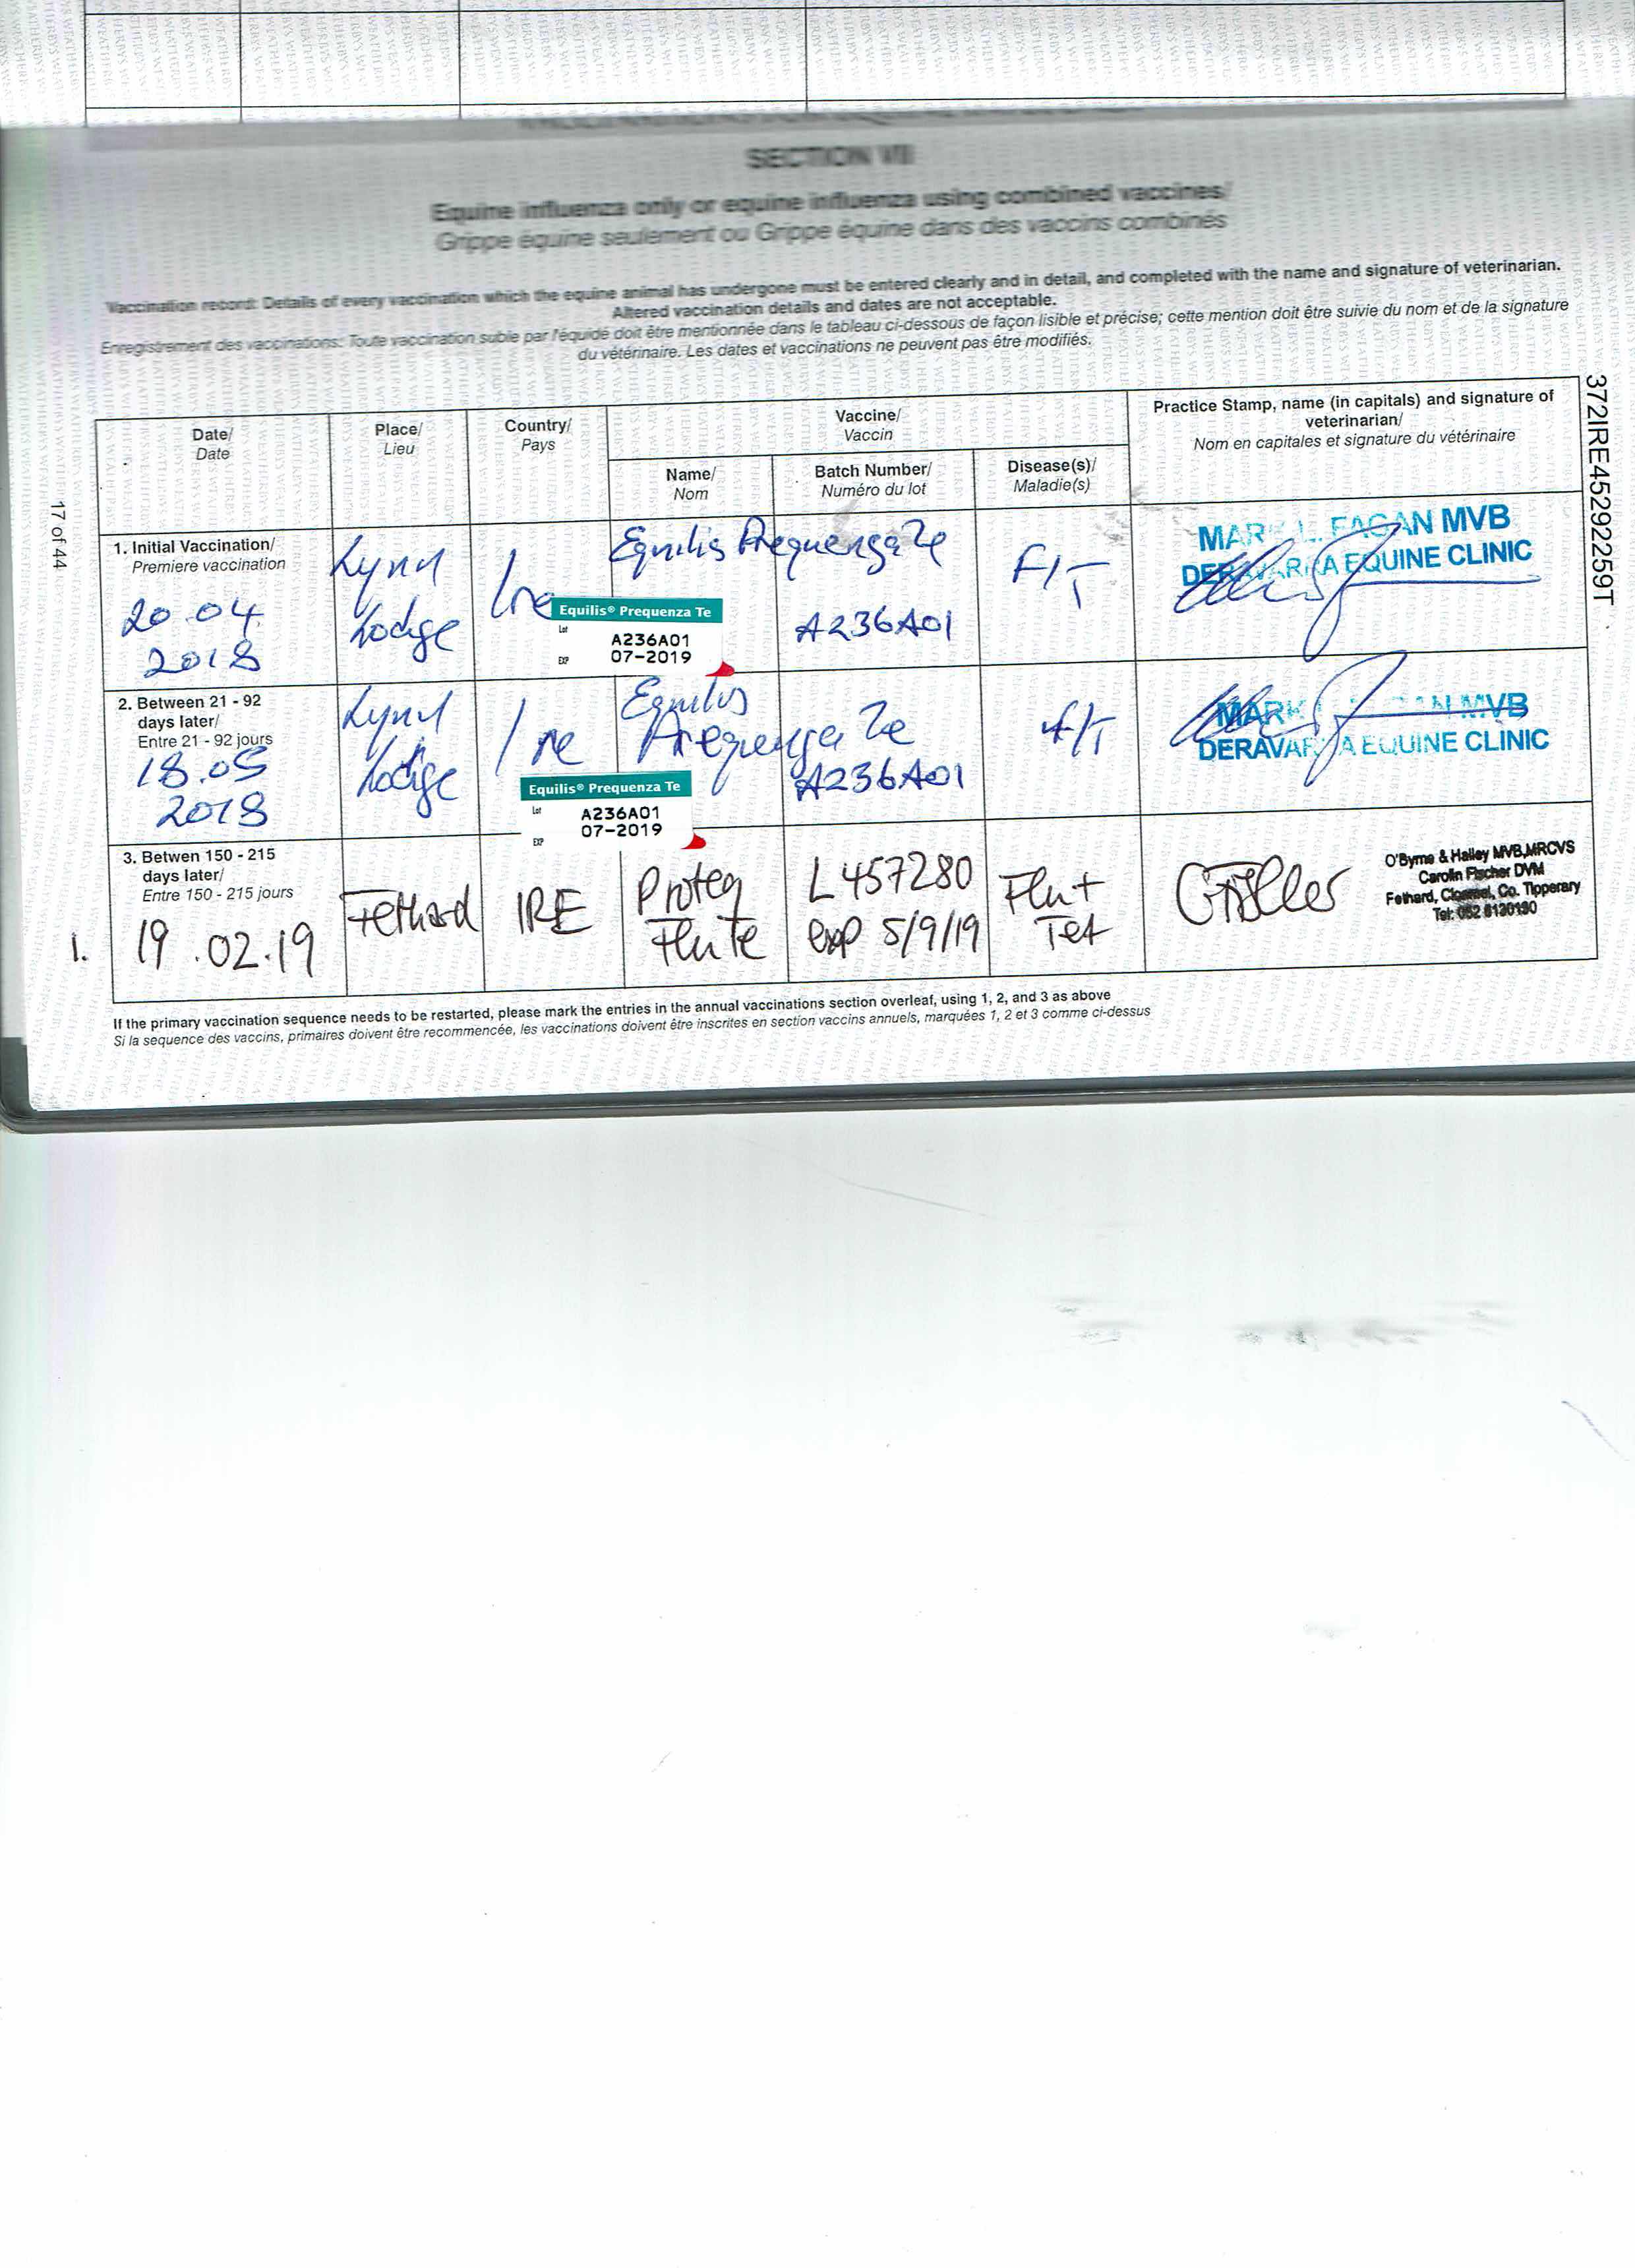 SECTION VII
Equine influenza only or equine influenza using combined vaccines/
Grippe équine seulement ou Grippe équine dans des vaccins combinés
Vaccination record: Details of every vaccination which the equine animal has undergone must be entered clearly and in detail, and completed with the name and signature of veterinarian.
Altered vaccination details and dates are not acceptable.
Enregistrement des vaccinations: Toute vaccination subie par l'équidé doit être mentionnée dans le tableau ci-dessous de façon lisible et précise; cette mention doit être suivie du nom et de la signature
du vétérinaire. Les dates et vaccinations ne peuvent pas être modifiés.
Date/
Date
Place/
Lieu
Country/
Pays
Vaccine/
Vaccin
Name/
Nom
Batch Number/
Numéro du lot
Disease(s)/
Maladie(s)
Practice Stamp, name (in capitals) and signature of
veterinarian/
Nom en capitales et signature du vétérinaire
1. Initial Vaccination/
Premiere vaccination
20.04.
2018
Lynn
Lodge
Ire
Equilis Prequenza Te
A236A01
Equilis® Prequenza Te
Lot
A236A01
EXP
07-2019
F/T
MARK L. FAGAN MVB
DERAVARRA EQUINE CLINIC
2. Between 21 - 92
days later/
Entre 21 - 92 jours
18.05
2018
Lynn
Lodge
Ire
Equilis
Prequenza Te
A236A01
Equilis® Prequenza Te
Lot
A236A01
EXP
07-2019
F/T
MARK L. FAGAN MVB
DERAVARRA EQUINE CLINIC
3. Betwen 150 - 215
days later/
Entre 150 - 215 jours
1.
19.02.19
Fethard
IRE
Proteq
Flu Te
L457280
exp 5/9/19
Flu +
Tet
O'Byrne & Halley MVB,MRCVS
Carolin Fischer DVM
Fethard, Clonmel, Co. Tipperary
Tel: 052 6130190
If the primary vaccination sequence needs to be restarted, please mark the entries in the annual vaccinations section overleaf, using 1, 2, and 3 as above
Si la sequence des vaccins, primaires doivent être recommencée, les vaccinations doivent être inscrites en section vaccins annuels, marquées 1, 2 et 3 comme ci-dessus
17 of 44
372IRE45292259T